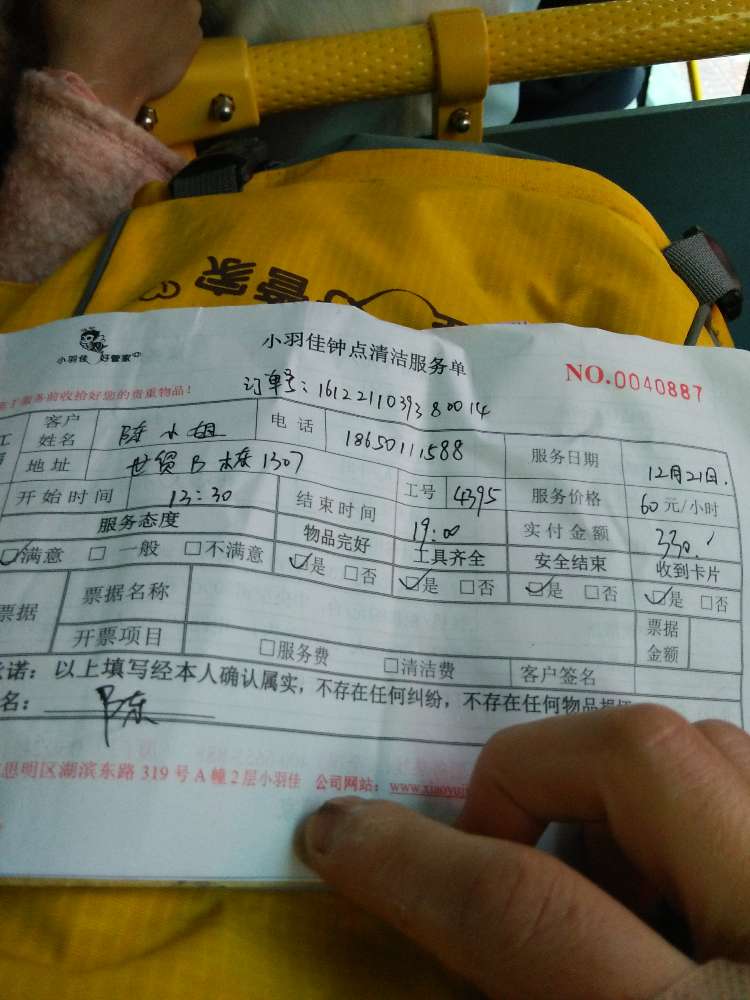 好管家
小羽佳 好管家
小羽佳钟点清洁服务单
NO.0040887
服务前收拾好您的贵重物品！
订单号：1612211039380014
客户姓名 陈小姐 电话 18650111588 服务日期 12月21日.
地址 世贸B栋1307 工号 4395 服务价格 60元/小时
开始时间 13:30 结束时间 19:00 实付金额 330.
服务态度 物品完好 工具齐全 安全结束 收到卡片
☑满意 □一般 □不满意 ☑是 □否 ☑是 □否 ☑是 □否 ☑是 □否
票据 票据名称 票据金额
开票项目 □服务费 □清洁费 客户签名
诺：以上填写经本人确认属实，不存在任何纠纷，不存在任何物品损
名：陈
思明区湖滨东路319号A幢2层小羽佳 公司网站：www.xiaoyuj